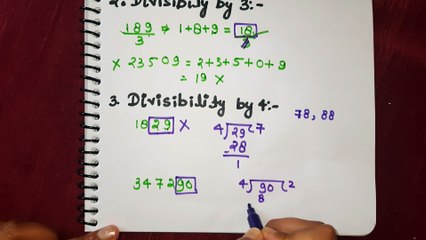 2. Divisibility by 3:-
189/3 ⇒ 1+8+9 = 18/3
× 23509 = 2+3+5+0+9
= 19 ×
3. Divisibility by 4:-
78, 88
1829 × 4)29(7
-28
1
347290 4)90(2
8